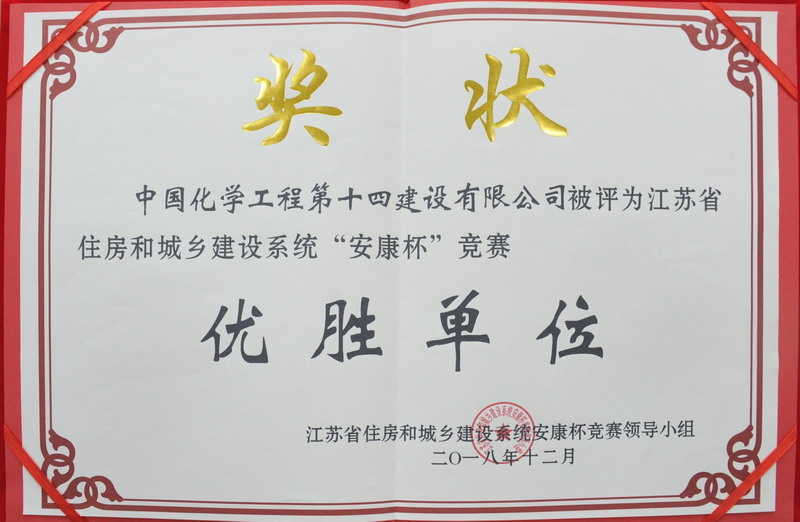 奖状
中国化学工程第十四建设有限公司被评为江苏省
住房和城乡建设系统“安康杯”竞赛
优胜单位
江苏省住房和城乡建设系统安康杯竞赛领导小组
二〇一八年十二月